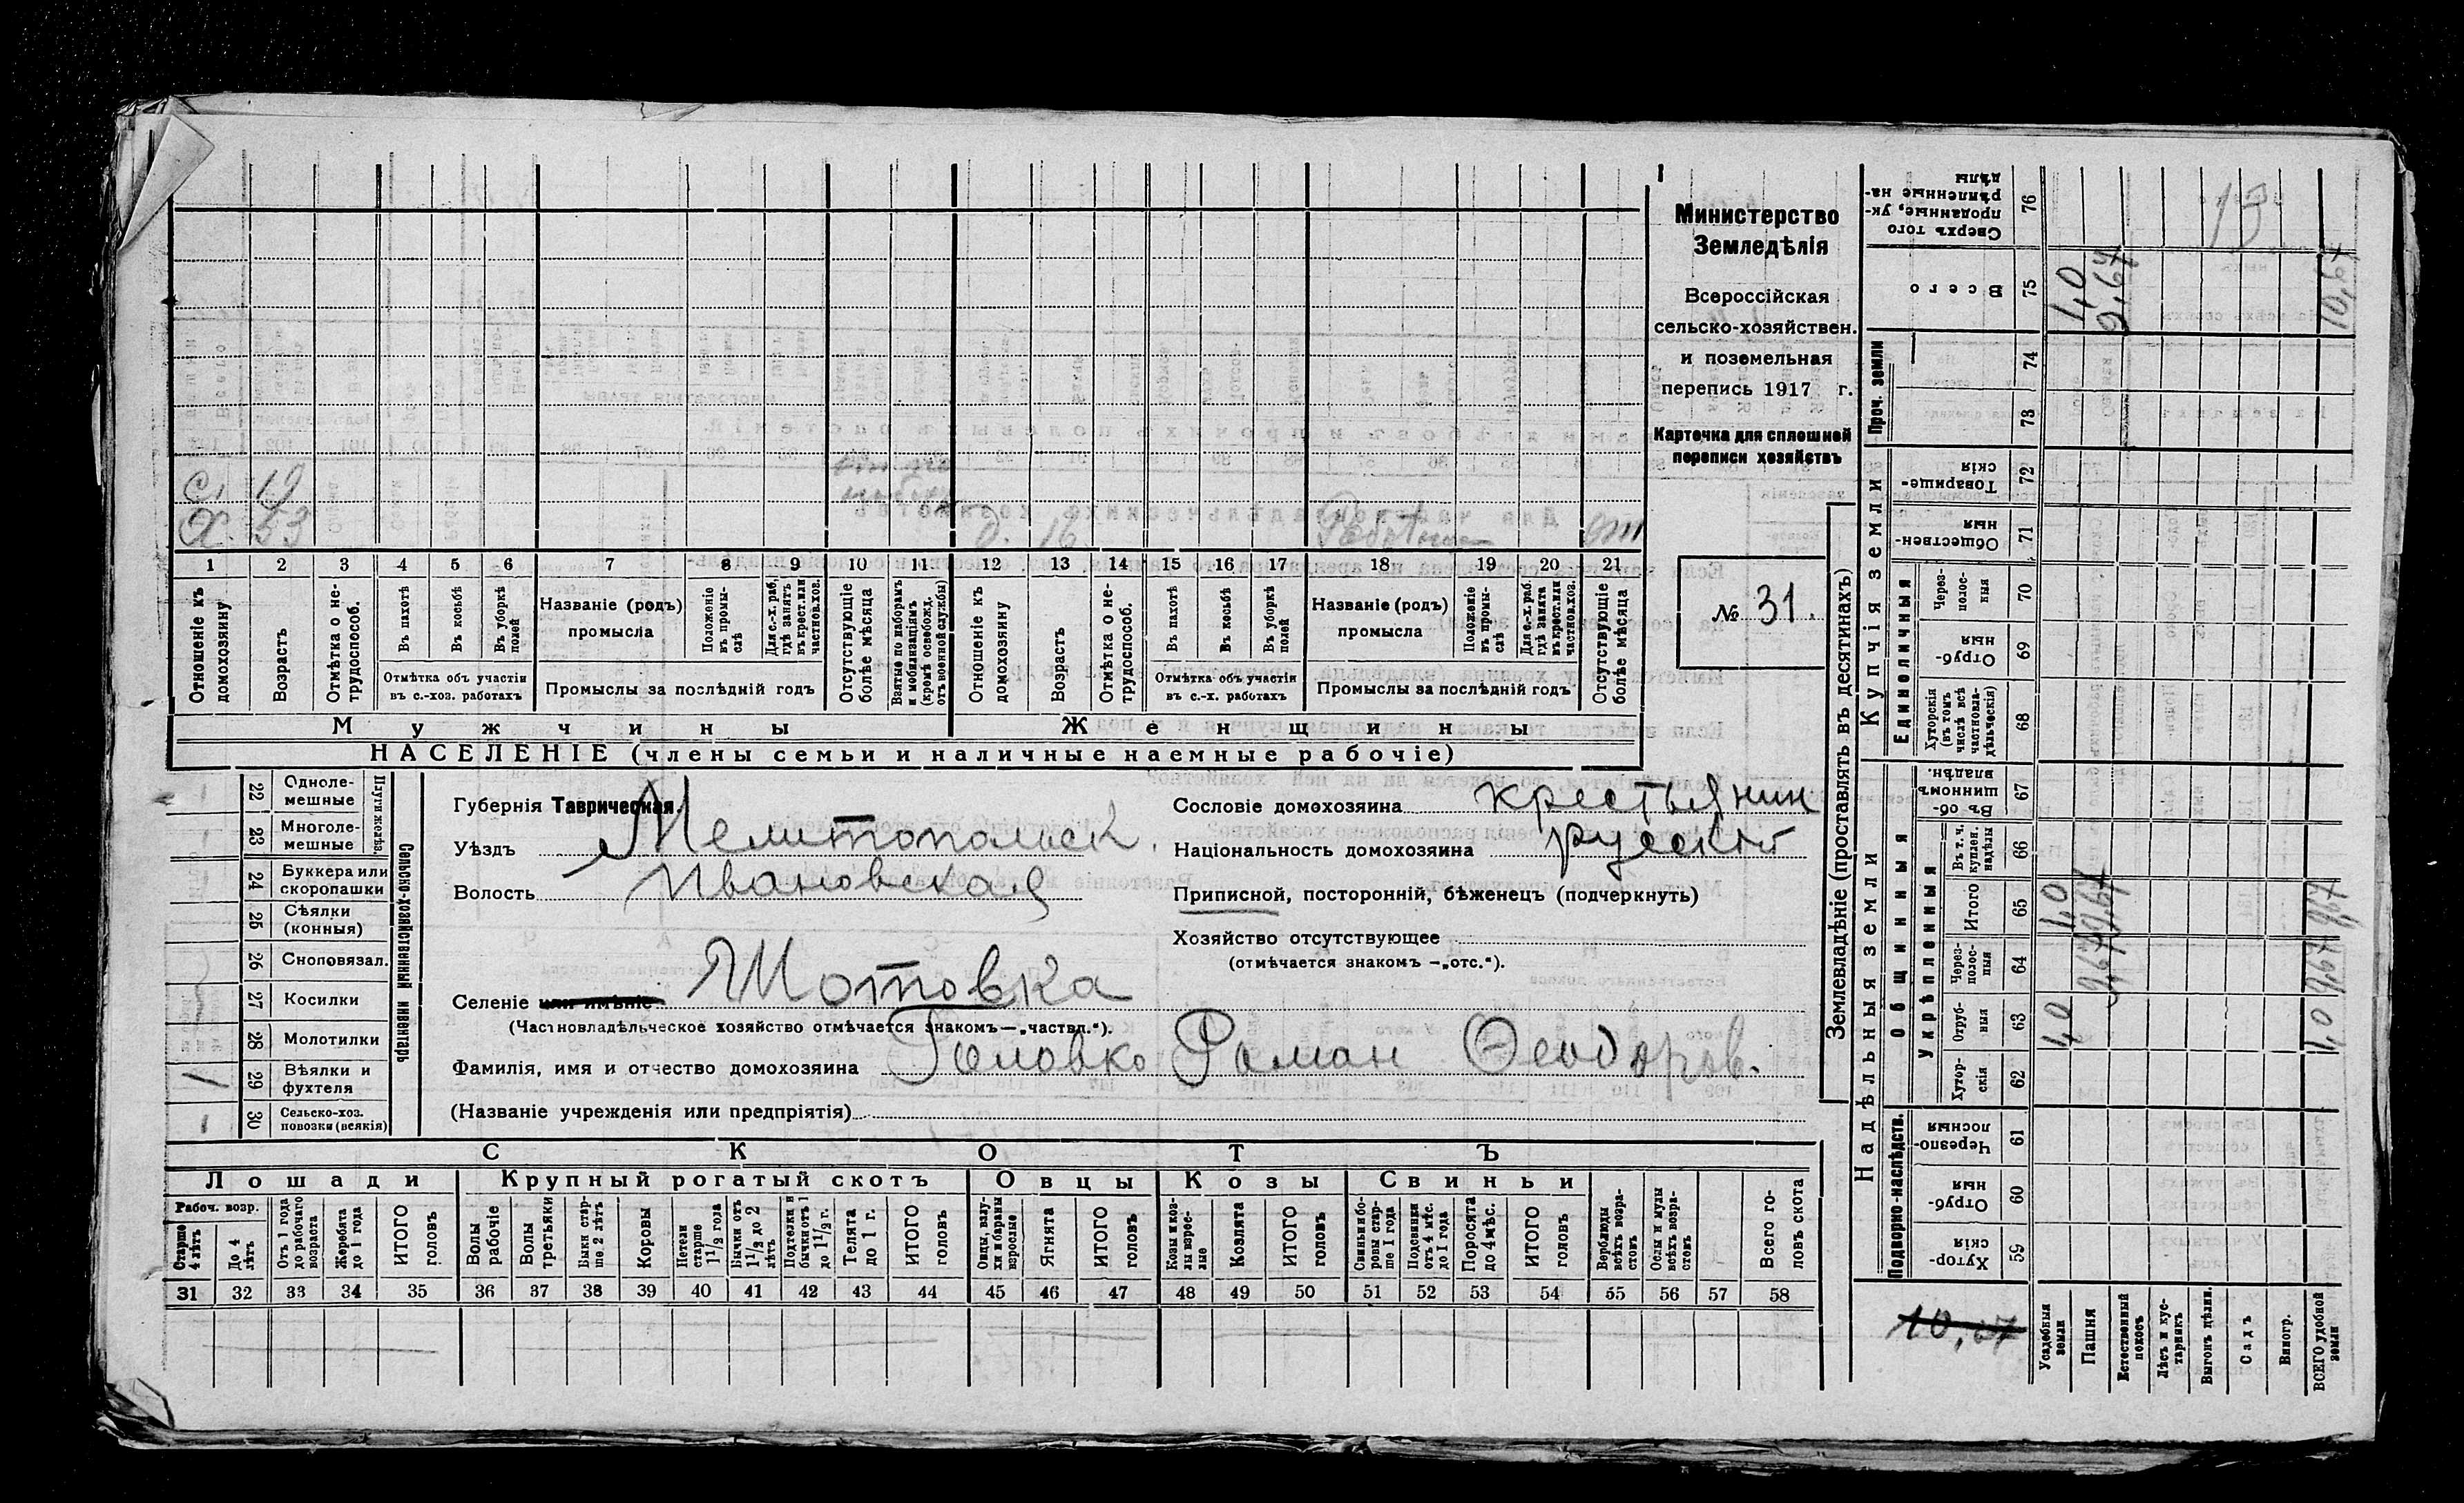 Министерство
Земледѣлія
Всероссійская
сельско-хозяйствен.
и поземельная
перепись 1917 г.
Карточка для сплошной
переписи хозяйствъ
№ 31.
с. 19
Х. 53
д. 16
1 2 3 4 5 6 7 8 9 10 11 12 13 14 15 16 17 18 19 20 21
Отношеніе къ домохозяину
Возрастъ
Отмѣтка о не-трудоспособ.
Въ пахотѣ
Въ косьбѣ
Въ уборкѣ полей
Отмѣтка объ участіи
въ с.-хоз. работахъ
Названіе (родъ)
промысла
Положеніе въ промы-слѣ
Для с.-х. раб. гдѣ занятъ въ крест. или частнов. хоз.
Промыслы за послѣдній годъ
Отсутствующіе болѣе мѣсяца
Взятые по наборамъ и мобилизаціямъ (кромѣ освобожд. отъ военной службы)
Отношеніе къ домохозяину
Возрастъ
Отмѣтка о не-трудоспособ.
Въ пахотѣ
Въ косьбѣ
Въ уборкѣ полей
Отмѣтка объ участіи
въ с.-х. работахъ
Названіе (родъ)
промысла
Положеніе въ промы-слѣ
Для с.-х. раб. гдѣ занята въ крест. или частнов. хоз.
Промыслы за послѣдній годъ
Отсутствующіе болѣе мѣсяца
Мужчины Женщины
НАСЕЛЕНІЕ (члены семьи и наличные наемные рабочіе)
Сельско-хозяйственный инвентарь
Плуги желѣз.
22 Одноле-мешные
23 Многоле-мешные
24 Буккера или скоропашки
25 Сѣялки (конныя)
26 Сноповязал.
27 Косилки
28 Молотилки
29 Вѣялки и фухтеля
1
30 Сельско-хоз. повозки (всякія)
Губернія Таврическая.
Уѣздъ Мелитопольск.
Волость Ивановская
Селеніе или имѣніе Шотовка
(Частновладѣльческое хозяйство отмѣчается знакомъ—„частвл.“).
Фамилія, имя и отчество домохозяина Головко Роман Ѳеодоров.
(Названіе учрежденія или предпріятія)
Сословіе домохозяина крестьянин
Національность домохозяина русский
Приписной, посторонній, бѣженецъ (подчеркнуть)
Хозяйство отсутствующее
(отмѣчается знакомъ —„отс.“).
СКОТЪ
Лошади Крупный рогатый скотъ Овцы Козы Свиньи
Рабоч. возр.
Старше 4 лѣтъ
До 4 лѣтъ
Отъ 1 года до рабочаго возраста
Жеребята до 1 года
ИТОГО головъ
Волы рабочіе
Волы третьяки
Быки стар-ше 2 лѣтъ
Коровы
Нетели старше 1 1/2 года
Бычки отъ 1 1/2 до 2 лѣтъ
Подтелки и бычки отъ 1 до 1 1/2 г.
Телята до 1 г.
ИТОГО головъ
Овцы, валу-хи и бараны взрослые
Ягнята
ИТОГО головъ
Козы и коз-лы взрос-лые
Козлята
ИТОГО головъ
Свиньи и бо-ровы стар-ше 1 года
Подсвинки отъ 4 мѣс. до 1 года
Поросята до 4 мѣс.
ИТОГО головъ
Верблюды всѣхъ возра-стовъ
Ослы и мулы всѣхъ возра-стовъ
Всего го-ловъ скота
31 32 33 34 35 36 37 38 39 40 41 42 43 44 45 46 47 48 49 50 51 52 53 54 55 56 57 58
Землевладѣніе (проставлять въ десятинахъ)
Надѣльныя земли
Купчія земли
Проч. земли
Подворно-наслѣдств.
Общинныя
Укрѣпленныя
Единоличныя
Сверхъ того проданные, ук-рѣпленные на-дѣлы 76
Всего 75 1,0 9,67 10,67
74
73
Товарище-скія 72
Обществен-ныя 71
Через-полос-ныя 70
Отруб-ныя 69
Хуторскія (въ томъ числѣ всѣ частновла-дѣльческія) 68
Въ об-щинномъ владѣн. 67
Въ т. ч. куплен. надѣлы 66
Итого 65 1,0
Через-полос-ныя 64 9,67 9,67
Отруб-ныя 63 1,0 1,0
Хутор-скія 62
Черезпо-лосныя 61
Отруб-ныя 60
Хутор-скія 59
10,67
Усадебныя земли
Пашня
Естественный покосъ
Лѣсъ и кус-тарникъ
Выгонъ дѣлян.
Садъ
Виногр.
ВСЕГО удобной земли